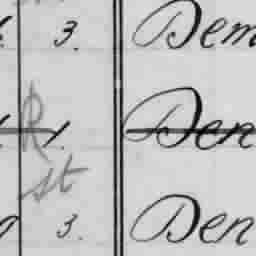 3. Dem
R 1. Den
st
3. Den